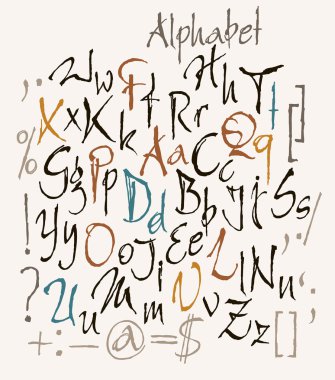 Alphabet
, : W w F f H h T t [ ]
X x K k R r Q q
% G g P p A a C c
! Y y D d B b J j S s , . /
? O o J i E e L l N n ' ;
U u M m V v Z z [ ]
+ : - @ = $